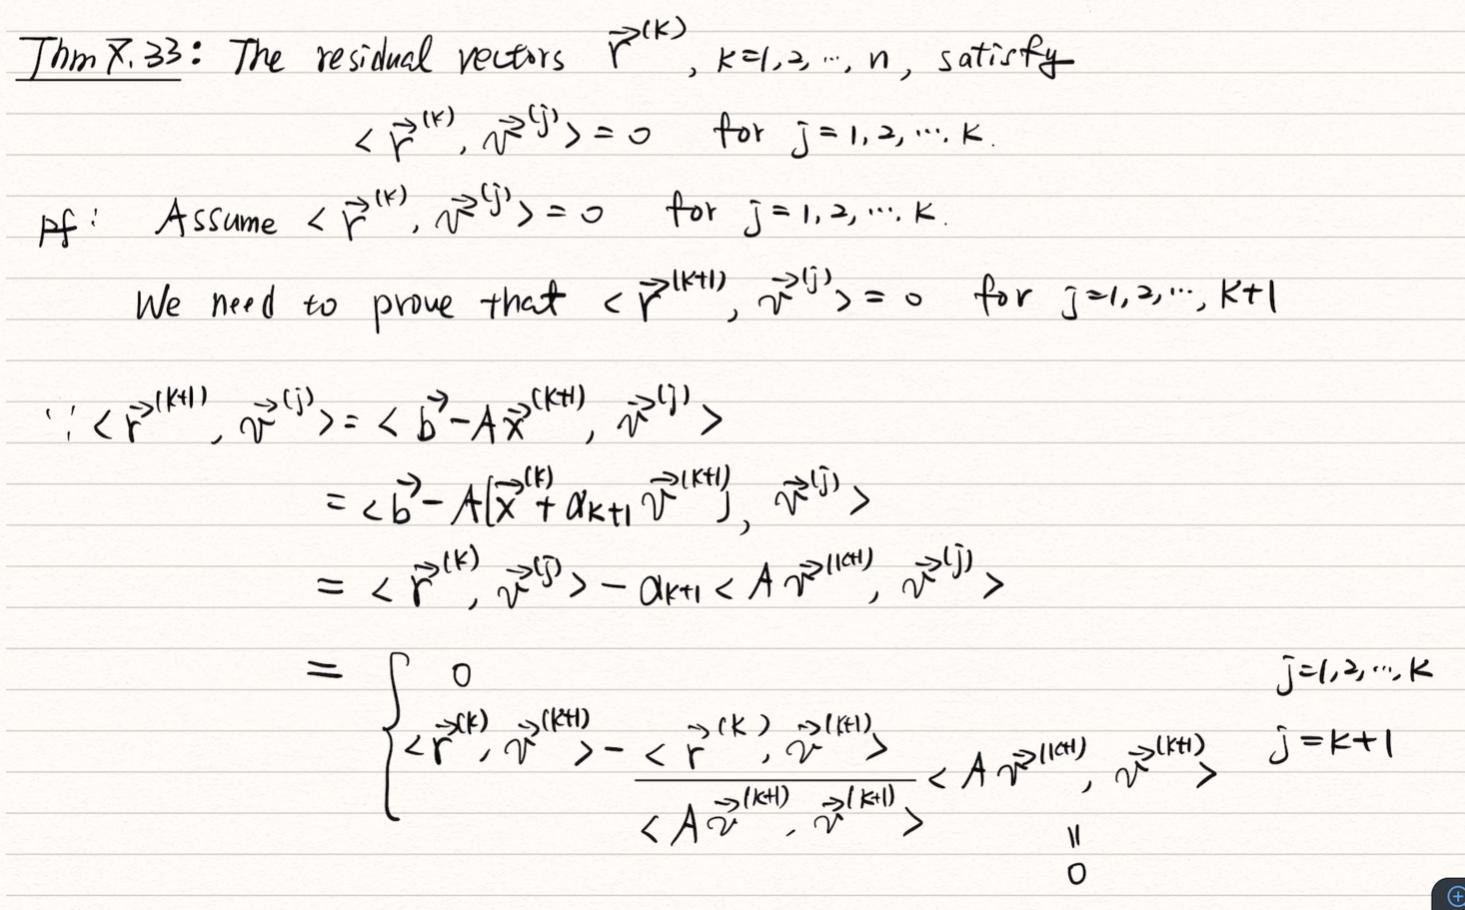 Thm 7.33: The residual vectors $\vec{r}^{(k)}$, k=1,2,…, n, satisfy
$<\vec{r}^{(k)}, \vec{v}^{(j)}> = 0$ for j=1,2,…,k.
pf: Assume $<\vec{r}^{(k)}, \vec{v}^{(j)}> = 0$ for j=1,2,…,k.
We need to prove that $<\vec{r}^{(k+1)}, \vec{v}^{(j)}> = 0$ for j=1,2,…, k+1
∵ $<\vec{r}^{(k+1)}, \vec{v}^{(j)}> = <\vec{b} - A\vec{x}^{(k+1)}, \vec{v}^{(j)}>$
$= <\vec{b} - A[\vec{x}^{(k)} + \alpha_{k+1} \vec{v}^{(k+1)}], \vec{v}^{(j)}>$
$= <\vec{r}^{(k)}, \vec{v}^{(j)}> - \alpha_{k+1} <A\vec{v}^{(k+1)}, \vec{v}^{(j)}>$
$= \begin{cases} 0 & j=1,2,…,k \\ <\vec{r}^{(k)}, \vec{v}^{(k+1)}> - \frac{<\vec{r}^{(k)}, \vec{v}^{(k+1)}>}{<A\vec{v}^{(k+1)}, \vec{v}^{(k+1)}>} <A\vec{v}^{(k+1)}, \vec{v}^{(k+1)}> & j=k+1 \end{cases}$
॥
0